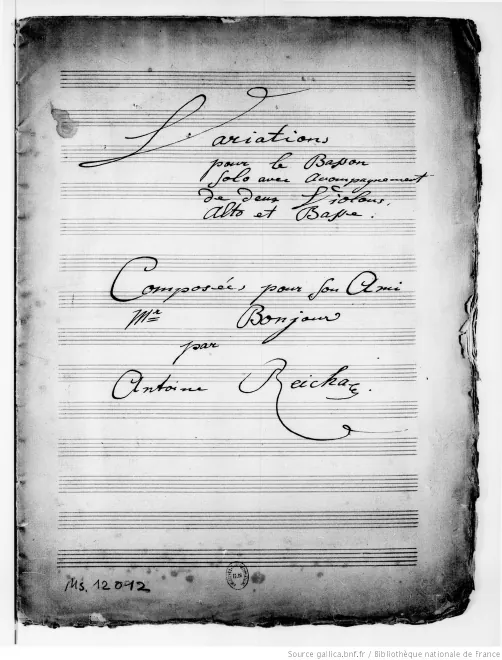 Variations
pour le Basson
Solo avec Accompagnement
de deux Violons,
Alto et Basse.
Composées pour son Ami
Mr Bonjour
par
Antoine Reicha.
Ms. 12012
Source gallica.bnf.fr / Bibliothèque nationale de France